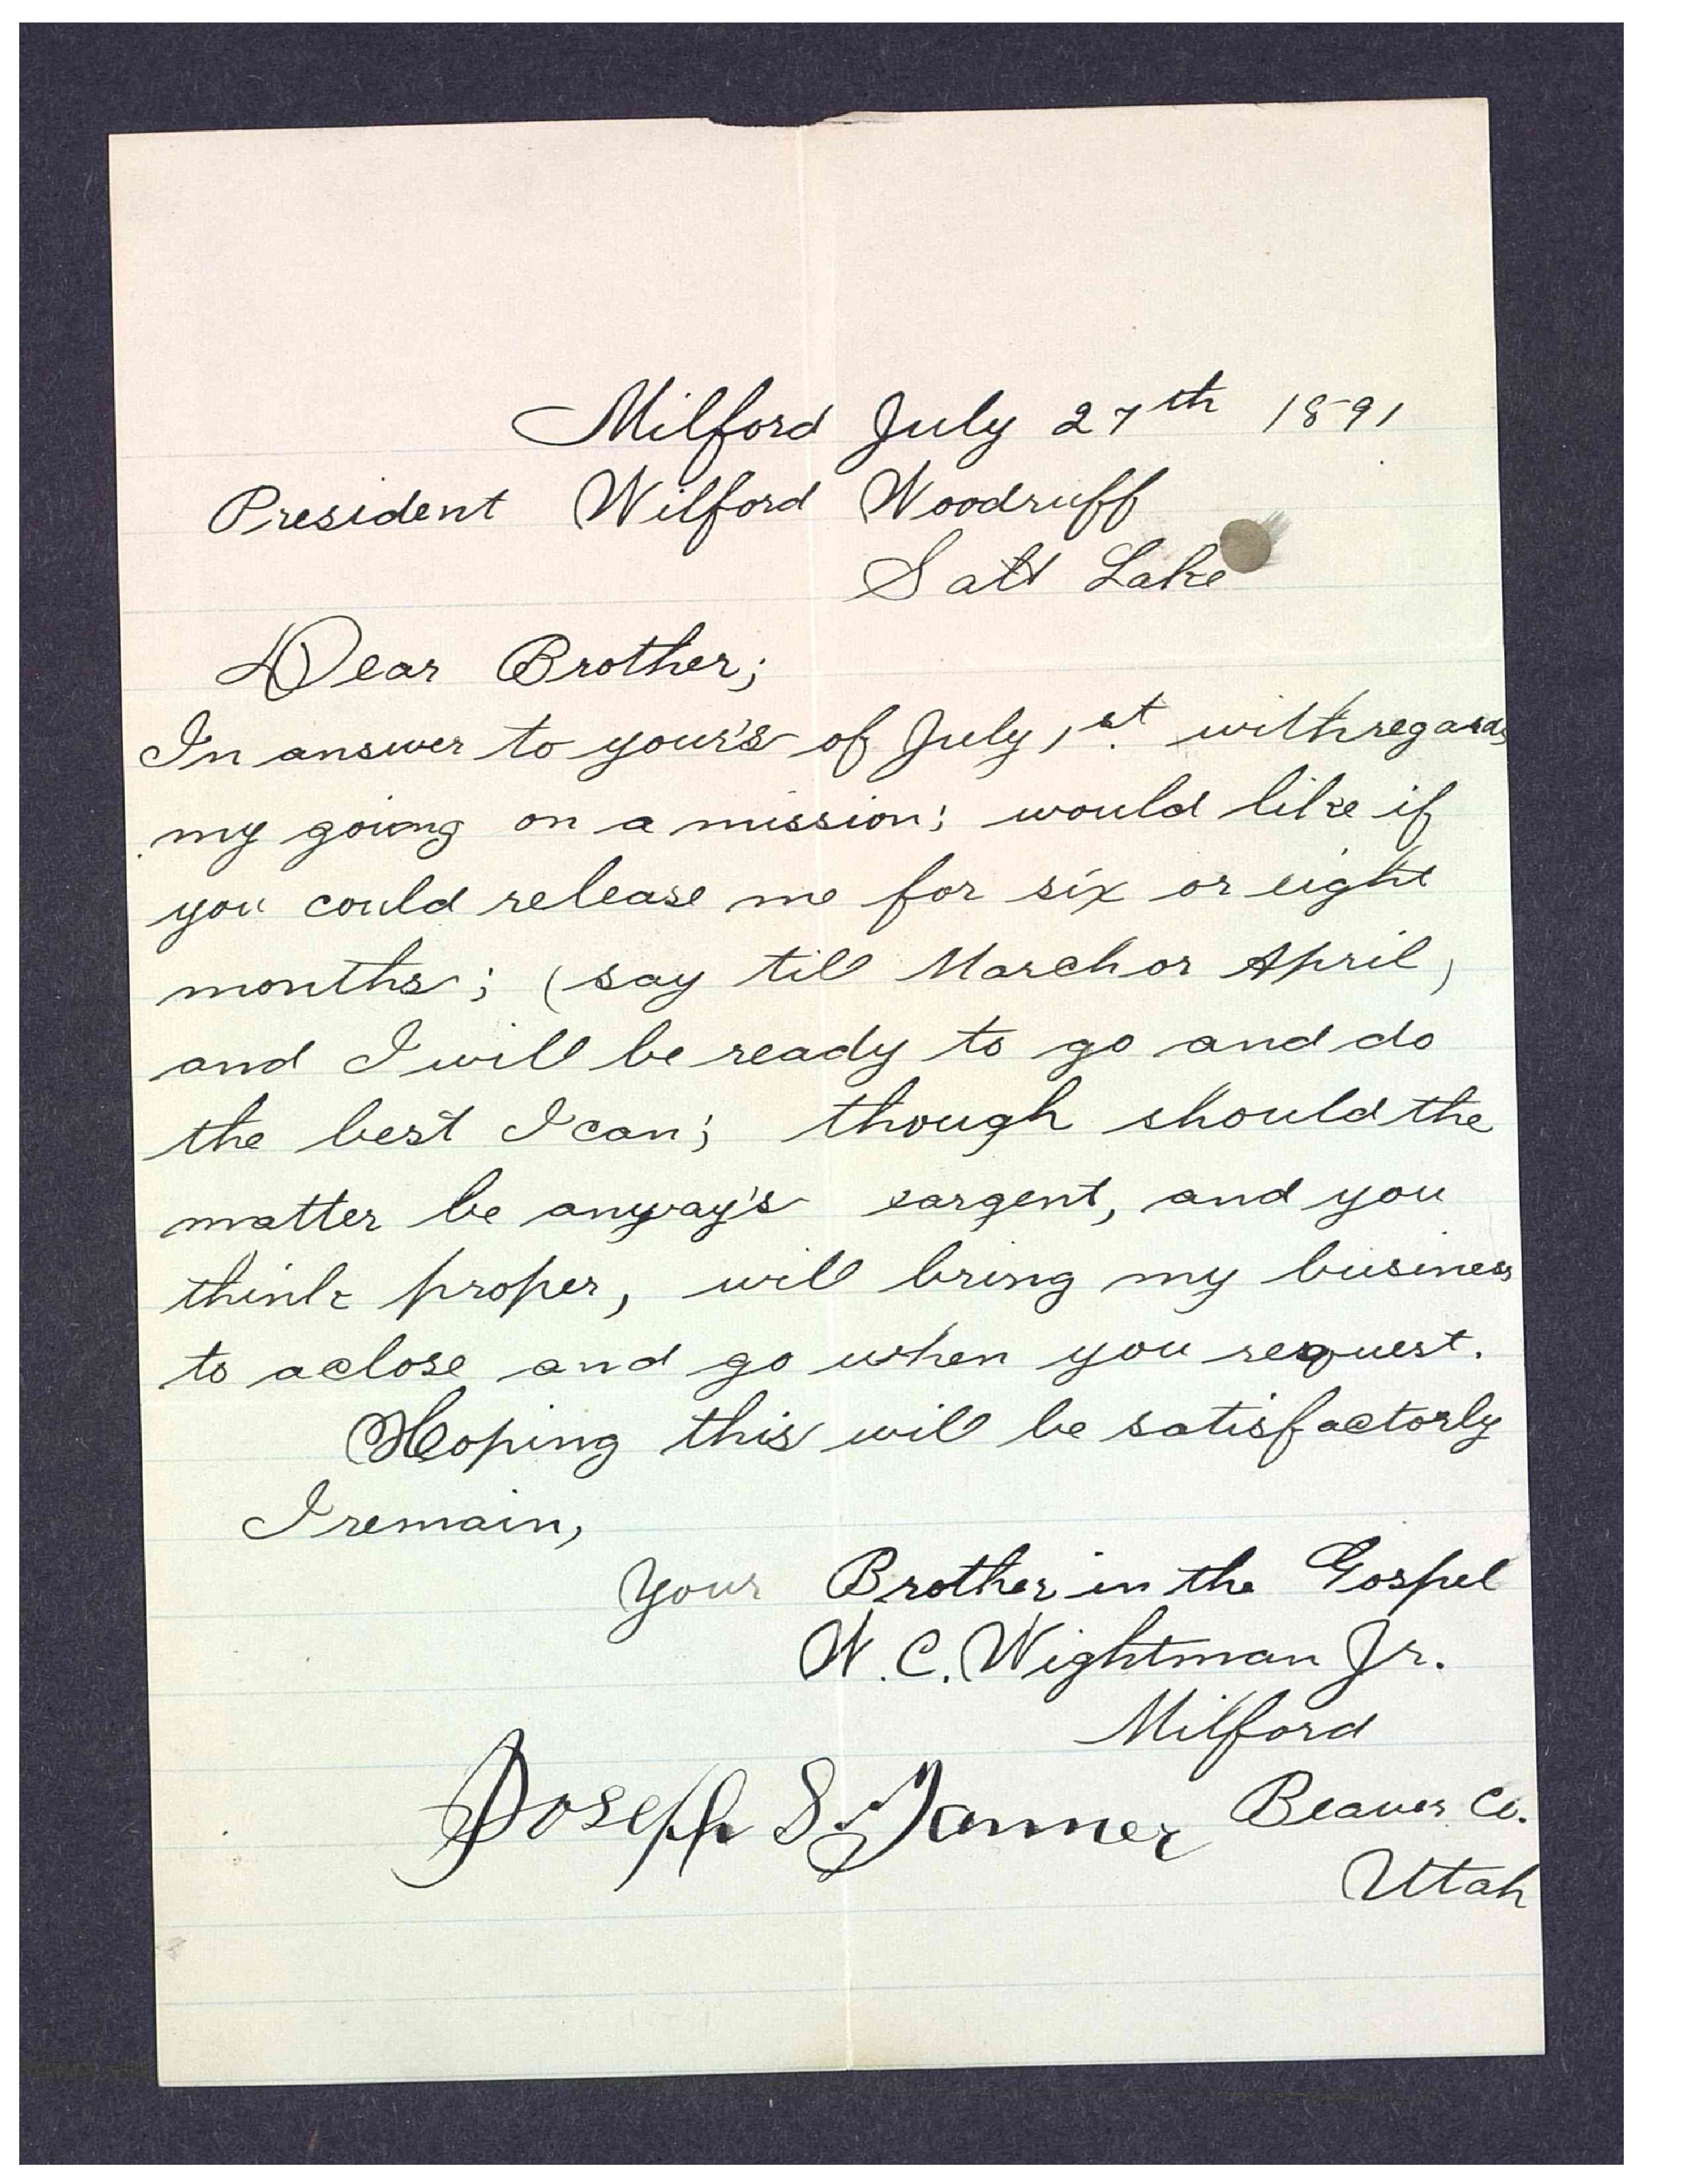 Milford July 27th 1891
President Wilford Woodruff
Salt Lake
Dear Brother;
In answer to your's of July 1st. with regards
my going on a mission; would like if
you could release me for six or eight
months; (say till March or April)
and I will be ready to go and do
the best I can; though should the
matter be anyway's eargent, and you
think proper, will bring my business
to a close and go when you request.
Hoping this will be satisfactorly
I remain,
Your Brother in the Gospel
W. C. Wightman Jr.
Milford
Joseph S. Tanner Beaver Co.
Utah